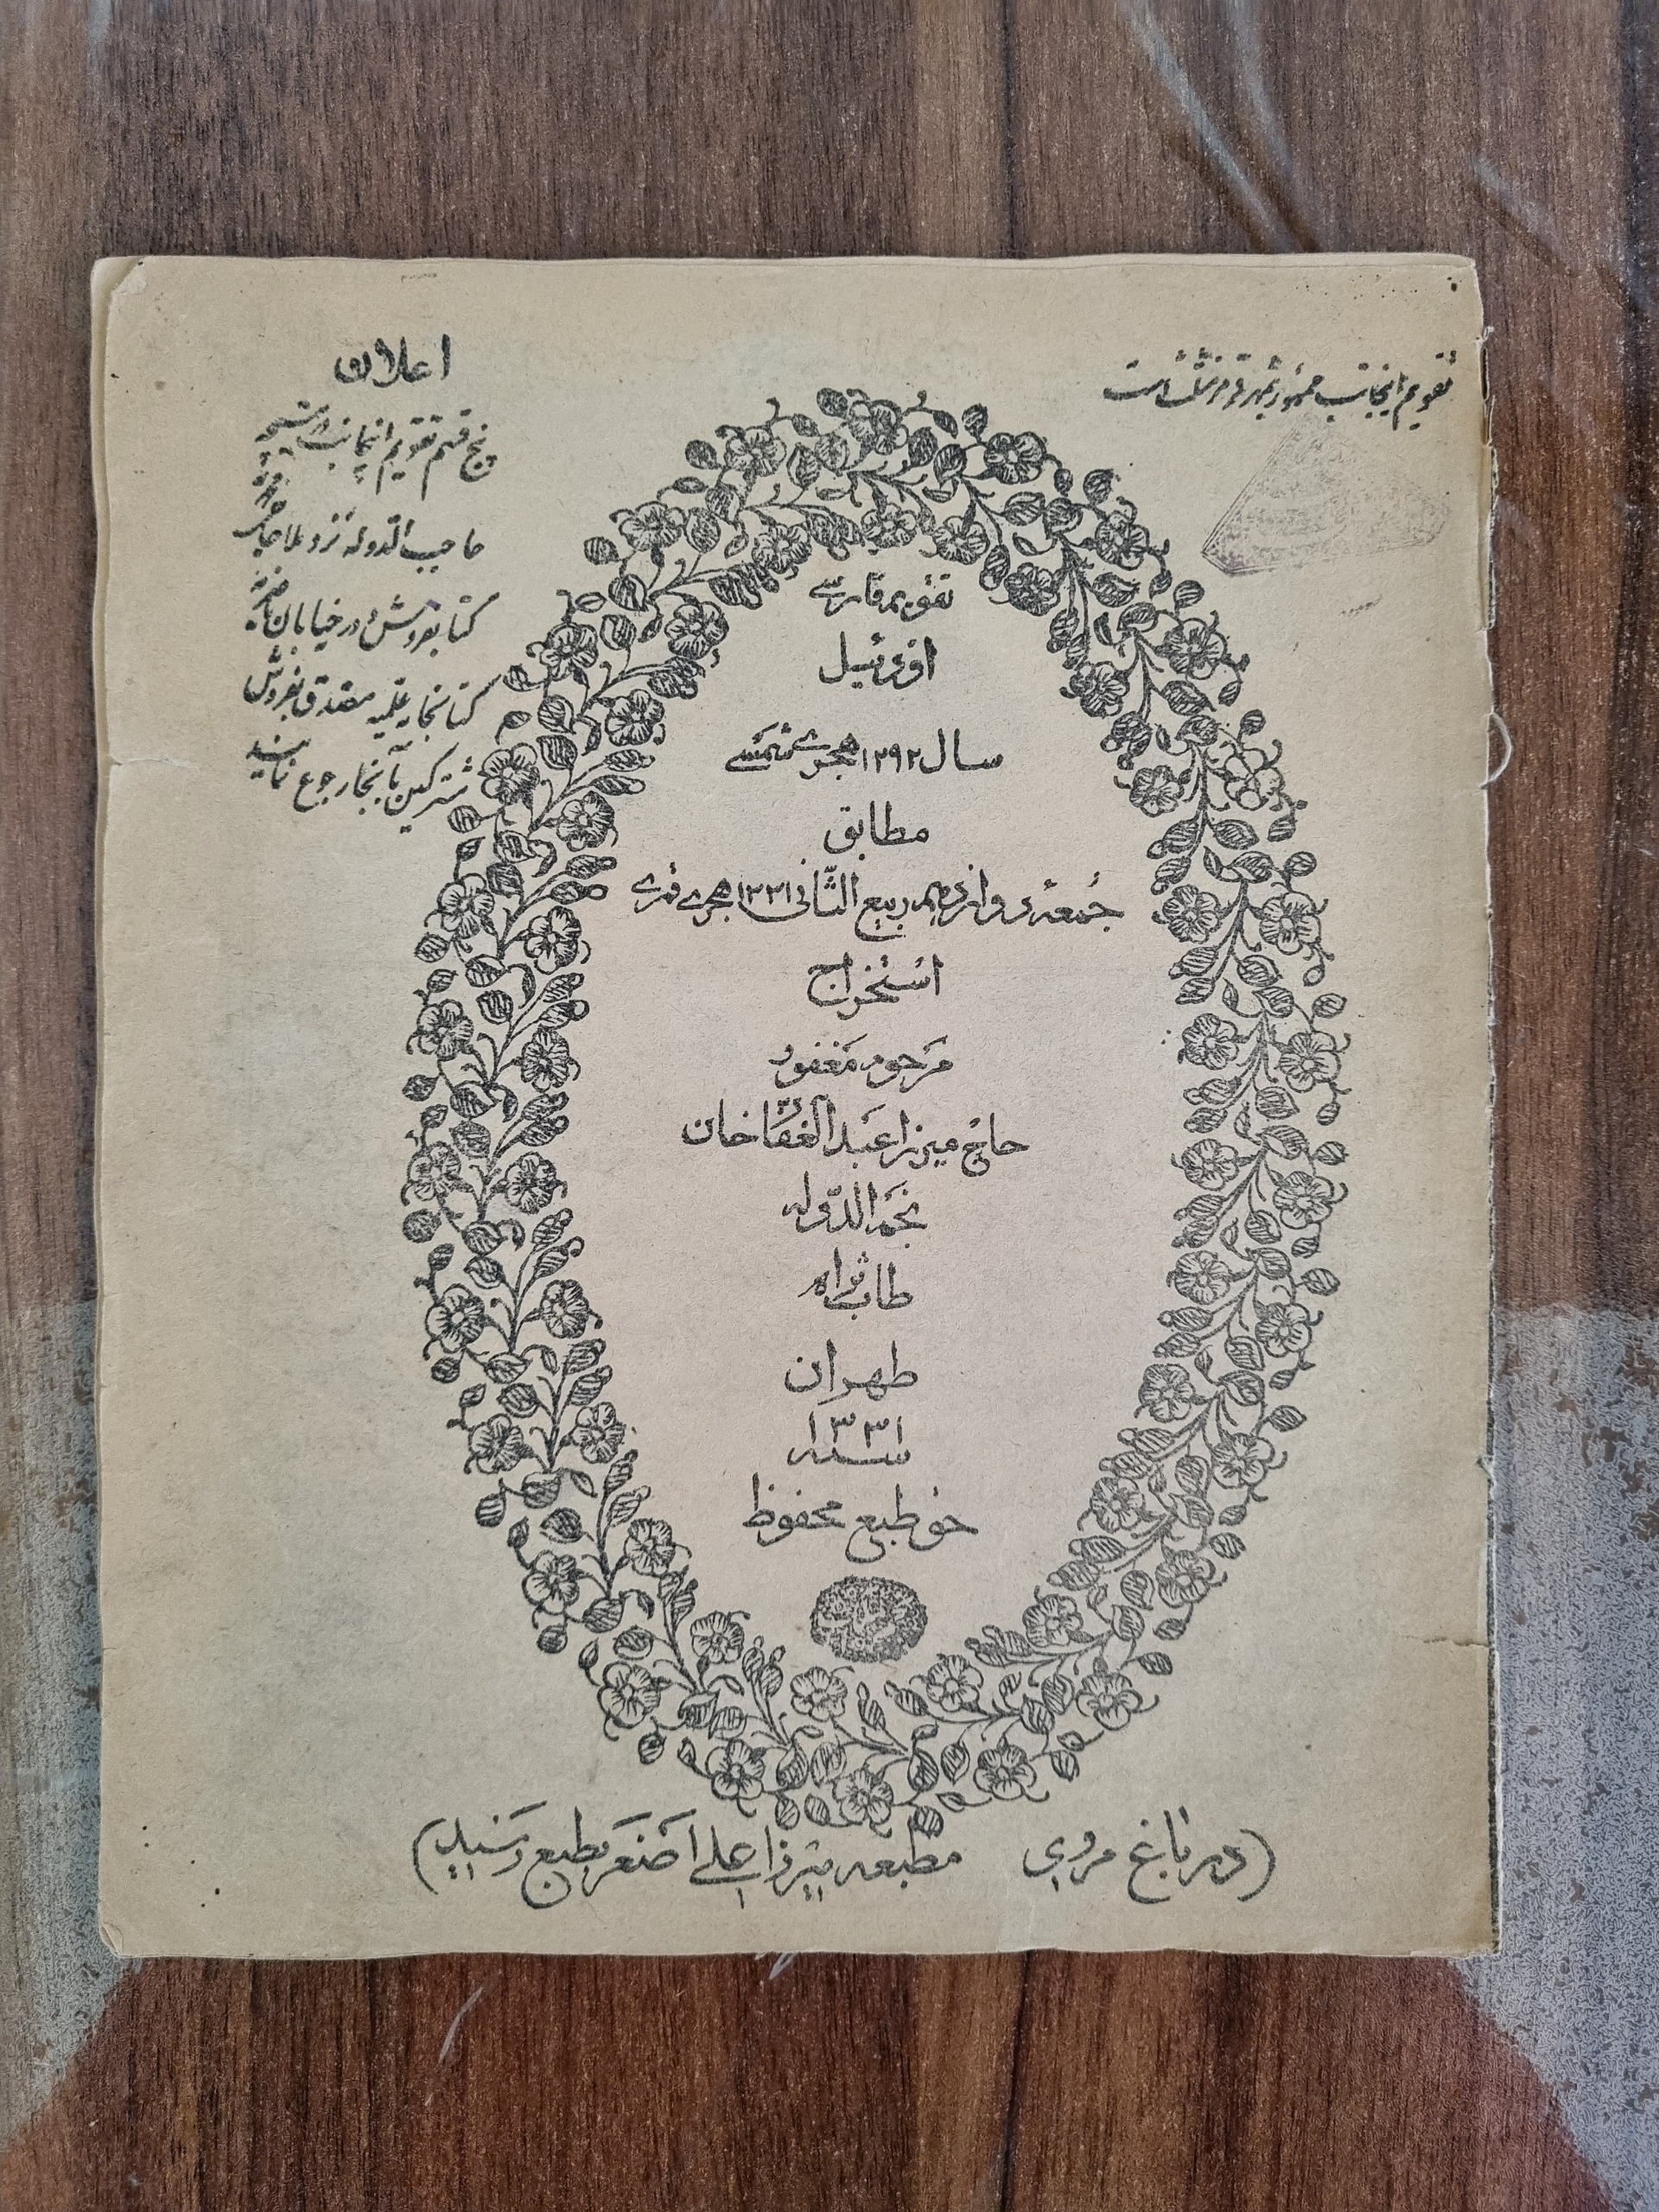 تقویم اینجانب ممهور بمهر و مثلث است
اعلان
پنج قسم تقویم اینجانب در
حاجب الدوله نزد ملا
کتابفروش و در خیابان ناصریه
کتابخانه علمیه مصدق بفروش
مشترکین بآنجا رجوع نمایند
تقویم فارسی
اودئیل
سال ۱۲۹۲ هجری شمسی
مطابق
جمعه دوازدهم ربیع الثانی ۱۳۳۱ هجری قمری
استخراج
مرحوم مغفور
حاج میرزا عبدالغفار خان
نجم الدوله
طاب ثراه
طهران
سنه ۱۳۳۱
حق طبع محفوظ
(در باغ مروی مطبعه میرزا علی اصغر بطبع رسید)